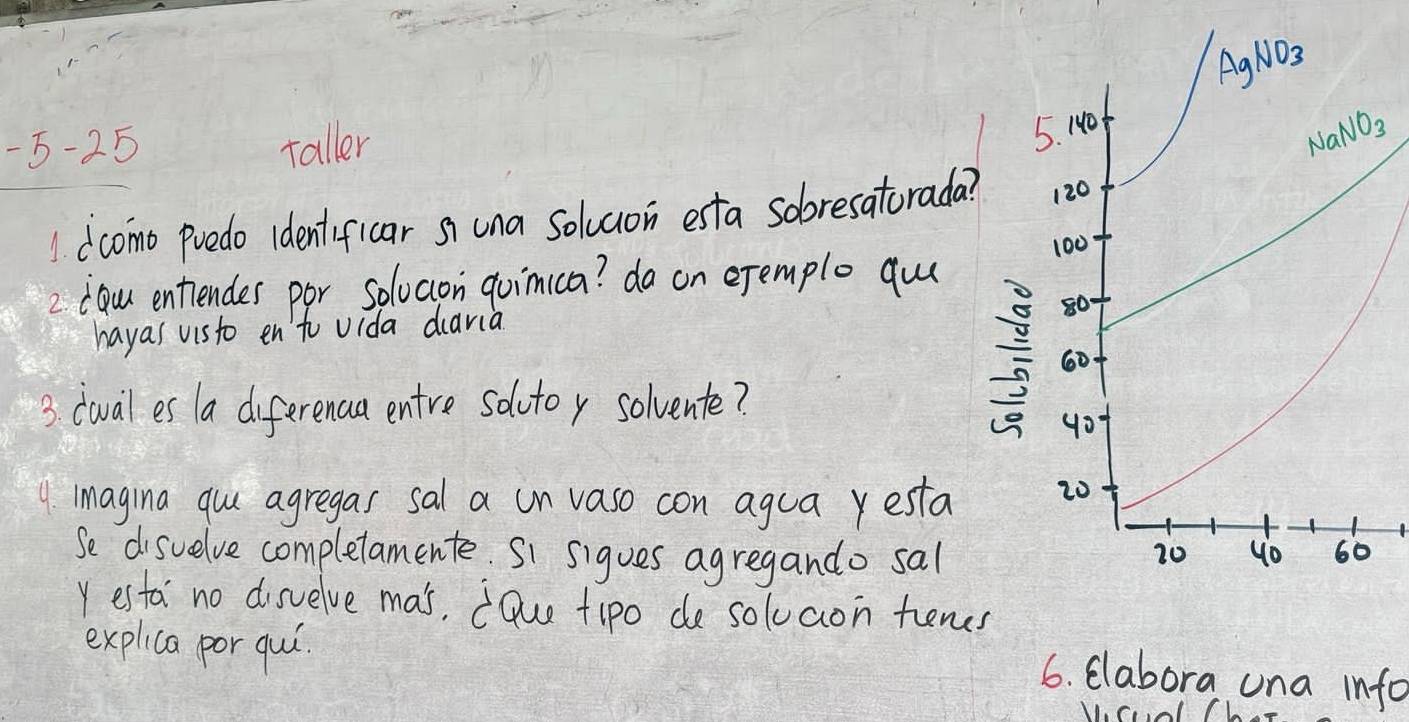 -5-25 taller
1. ¿como puedo identificar si una solución esta sobresaturada?
2. ¿Que entiendes por solución química? da un ejemplo que
hayas visto en tu vida diaria
3. ¿cuál es la diferencia entre soluto y solvente?
4. imagina que agregas sal a un vaso con agua y esta
se disuelve completamente. si sigues agregando sal
y está no disuelve más. ¿Que tipo de solución tienes
explica por qué.
5.
AgNO3
NaNO3
Solubilidad
140
120
100
80
60
40
20
20 40 60
6. Elabora una info
Visual